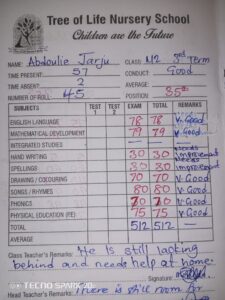 Tree of Life Nursery School
Children are the Future
NAME: Abdoulie Jarju CLASS: N2 3rd Term
TIME PRESENT: 57 CONDUCT: Good
TIME ABSENT: 2 AVERAGE:
NUMBER OF ROLL: 45 POSITION: 35th
SUBJECTS TEST 1 TEST 2 EXAM TOTAL REMARKS
ENGLISH LANGUAGE 78 78 V. Good
MATHEMATICAL DEVELOPMENT 79 79 V. Good
INTEGRATED STUDIES — — —
HAND WRITING 30 30 Needs improvement
SPELLINGS 30 30 Needs improvement
DRAWING / COLOURING 70 70 V. Good
SONGS / RHYMES 80 80 V. Good
PHONICS 70 70 V. Good
PHYSICAL EDUCATION (RE) 75 75 V. Good
TOTAL 512 512 —
AVERAGE
Class Teacher's Remarks: He is still lacking
behind and needs help at home.
Signature:
Head Teacher's Remarks: There is still room for
TECNO SPARK